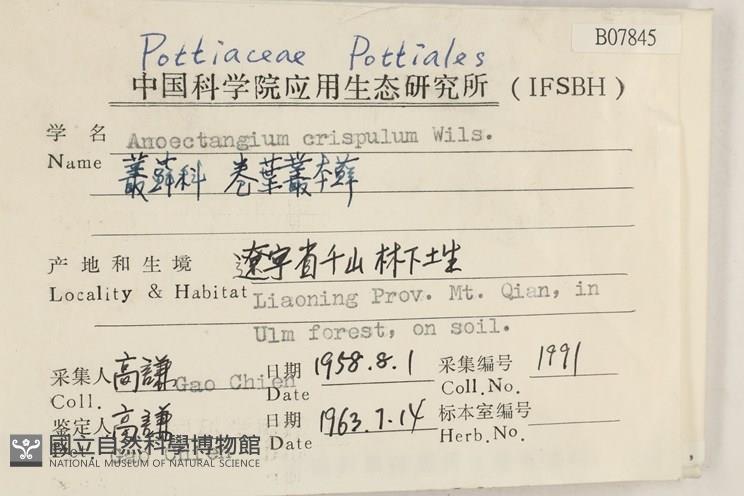 B07845
Pottiaceae Pottiales
中国科学院应用生态研究所 (IFSBH)
学名 Anoectangium crispulum Wils.
Name 叢蘚科 卷葉叢本蘚
产地和生境 遼宁省千山林下土生
Locality & Habitat Liaoning Prov. Mt. Qian, in
Ulm forest, on soil.
采集人 高謙 Gao Chien 日期 1958.8.1 采集编号 1991
Coll. Date Coll.No.
鉴定人 高謙 日期 1963.7.14 标本室编号
Det. Gao Chien Date Herb.No.
國立自然科學博物館
NATIONAL MUSEUM OF NATURAL SCIENCE